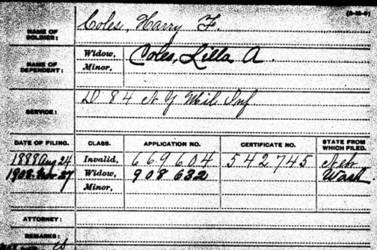 (3-014)
NAME OF SOLDIER: Coles, Harry F.
NAME OF DEPENDENT: Widow, Coles, Lilla A.
Minor,
SERVICE: D 84 N Y Mil Inf
DATE OF FILING. CLASS. APPLICATION NO. CERTIFICATE NO. STATE FROM WHICH FILED.
1888 Aug 24 Invalid, 669604 542745 Neb
1908 27 Widow, 908632 Wash
Minor,
ATTORNEY:
REMARKS: